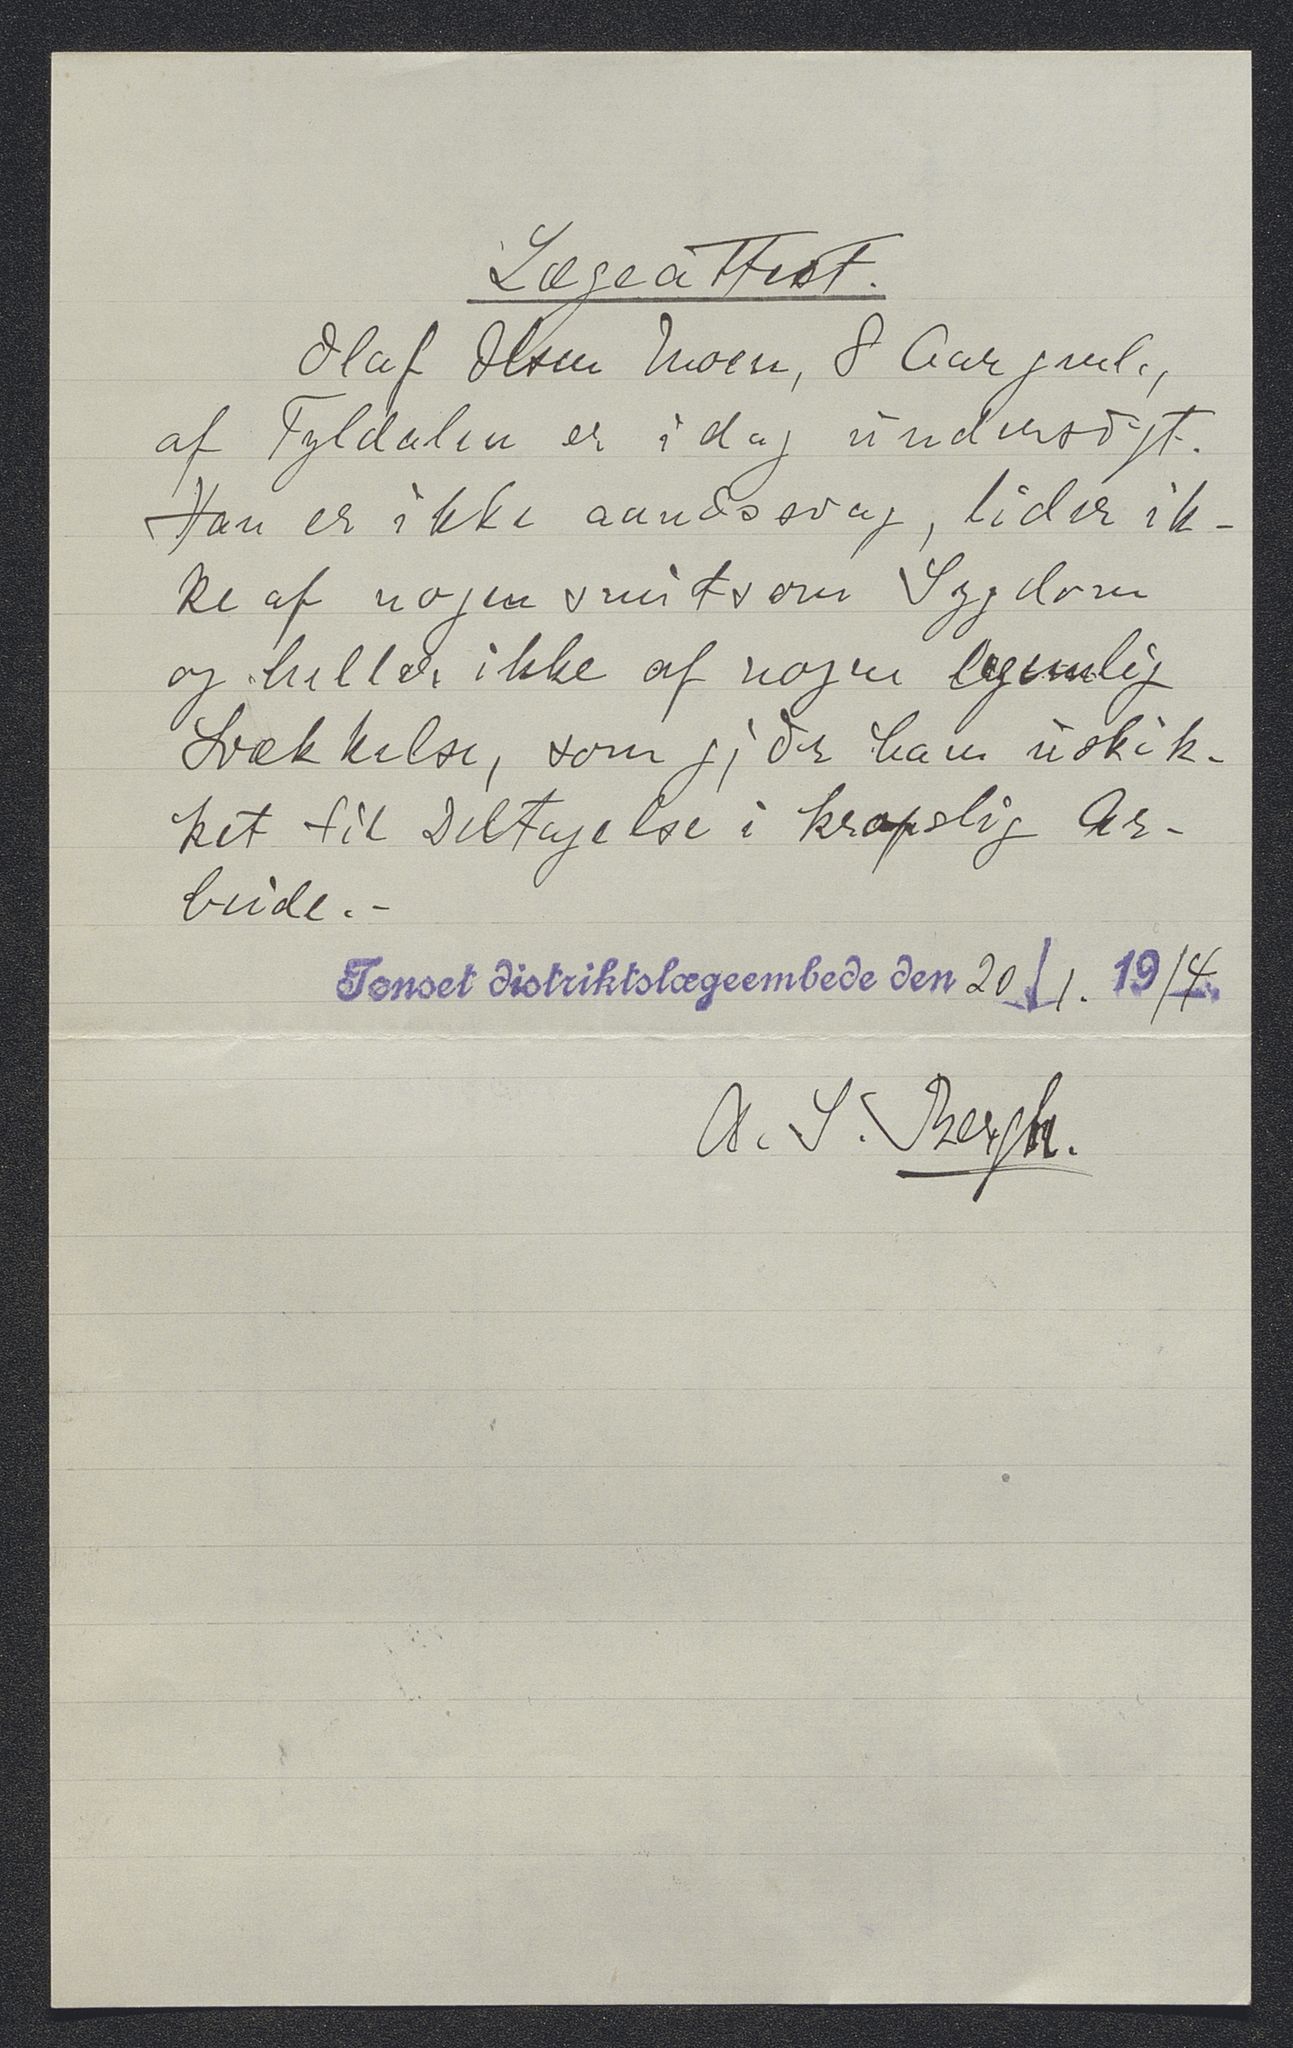 Lægeattest.
Olaf Olsen Moen, 8 Aar gml.,
af Tyldalen er idag undersøgt.
Han er ikke aandssvag, lider ik-
ke af nogen smitsom Sygdom
og heller ikke af nogen legemlig
Svækkelse, som gjør ham uskik-
ket til Deltagelse i kropslig Ar-
beide.-
Tønset distriktslægeembede den 20/1. 1914.
A. S. Bergh.